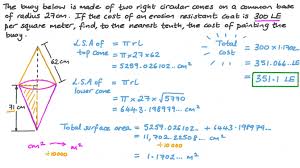 The buoy below is made of two right circular cones on a common base
of radius 27cm. If the cost of an erosion resistant coat is 300 LE
per square meter, find, to the nearest tenth, the cost of painting the
buoy.
62cm
71 cm
L.S.A of top cone = πrL
= π×27×62
= 5259.026102... cm²
L.S.A of lower cone = πrL
= π×27×√5770
= 6443.198979... cm²
Total surface area = 5259.026102... + 6443.198979...
= 11,702.22508... cm²
÷10000
= 1.1702... m²
cm² → m²
÷10000
Total cost = 300×1.1702...
= 351.066...
= 351.1 LE